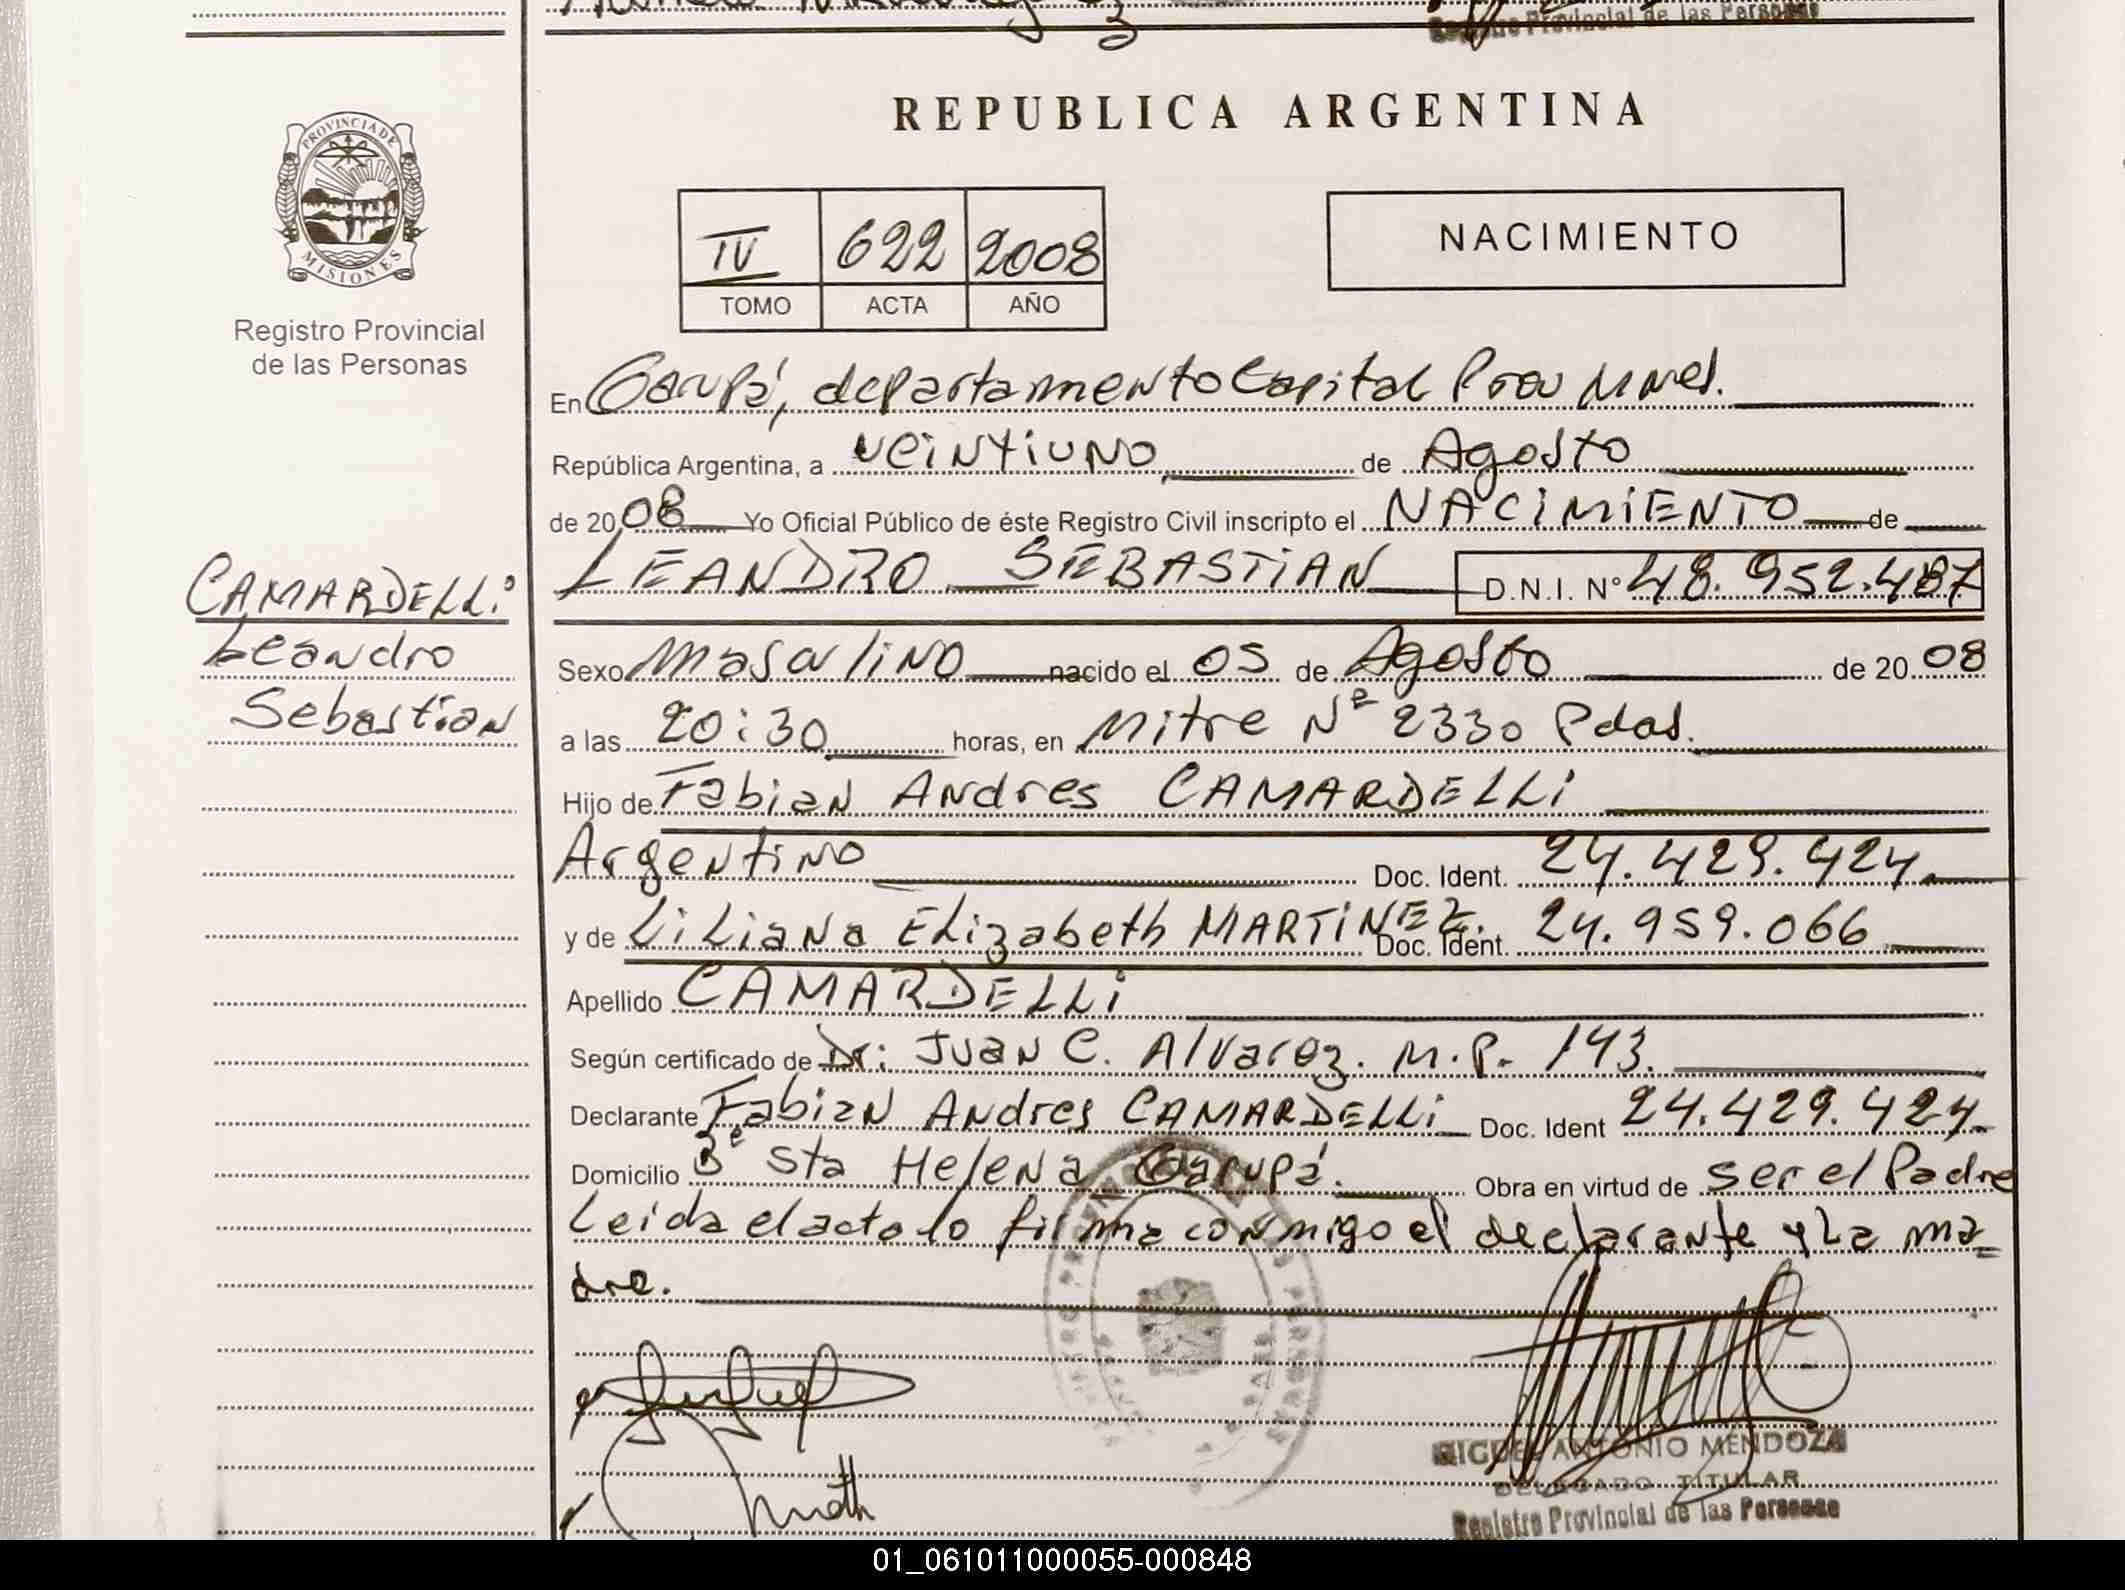 Registro Provincial de las Personas
REPUBLICA ARGENTINA
PROVINCIA DE
MISIONES
Registro Provincial
de las Personas
IV 622 2008
TOMO ACTA AÑO
NACIMIENTO
En Garupá, departamento Capital Prov Mnes.
República Argentina, a veintiuno de Agosto
de 2008 Yo Oficial Público de éste Registro Civil inscripto el NACIMIENTO de
LEANDRO SEBASTIAN D.N.I. Nº 48.952.487
CAMARDELLI
Leandro
Sebastian
Sexo Masculino nacido el 05 de Agosto de 2008
a las 20:30 horas, en Mitre Nº 2330 Pdas.
Hijo de Fabian Andres CAMARDELLI
Argentino Doc. Ident. 24.429.424.
y de Liliana Elizabeth MARTINEZ. Doc. Ident. 24.959.066
Apellido CAMARDELLI
Según certificado de Dr: Juan C. Alvarez. M.P. 143.
Declarante Fabian Andres CAMARDELLI Doc. Ident 24.429.424.
Domicilio Bº Sta Helena Garupá. Obra en virtud de ser el Padre
Leida el acta lo firma conmigo el declarante y La ma-
dre.
MIGUEL ANTONIO MENDOZA
DELEGADO TITULAR
Registro Provincial de las Personas
01_061011000055-000848